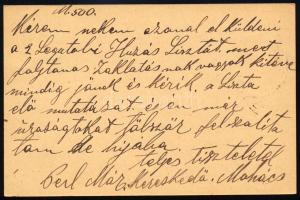 M.500.
Kérem nekem azonal elküldeni
a 2 Legutobi Huzás Lisztát mert
folytonos Zaklatásnak vagyok kitéve
mindig jönek és kérik, a Liszta
elő mutatását. és én már
uraságtokat fölszalita
tam de hijába
teljes tisztelettel
Perl Mór Kereskedő. Mohács